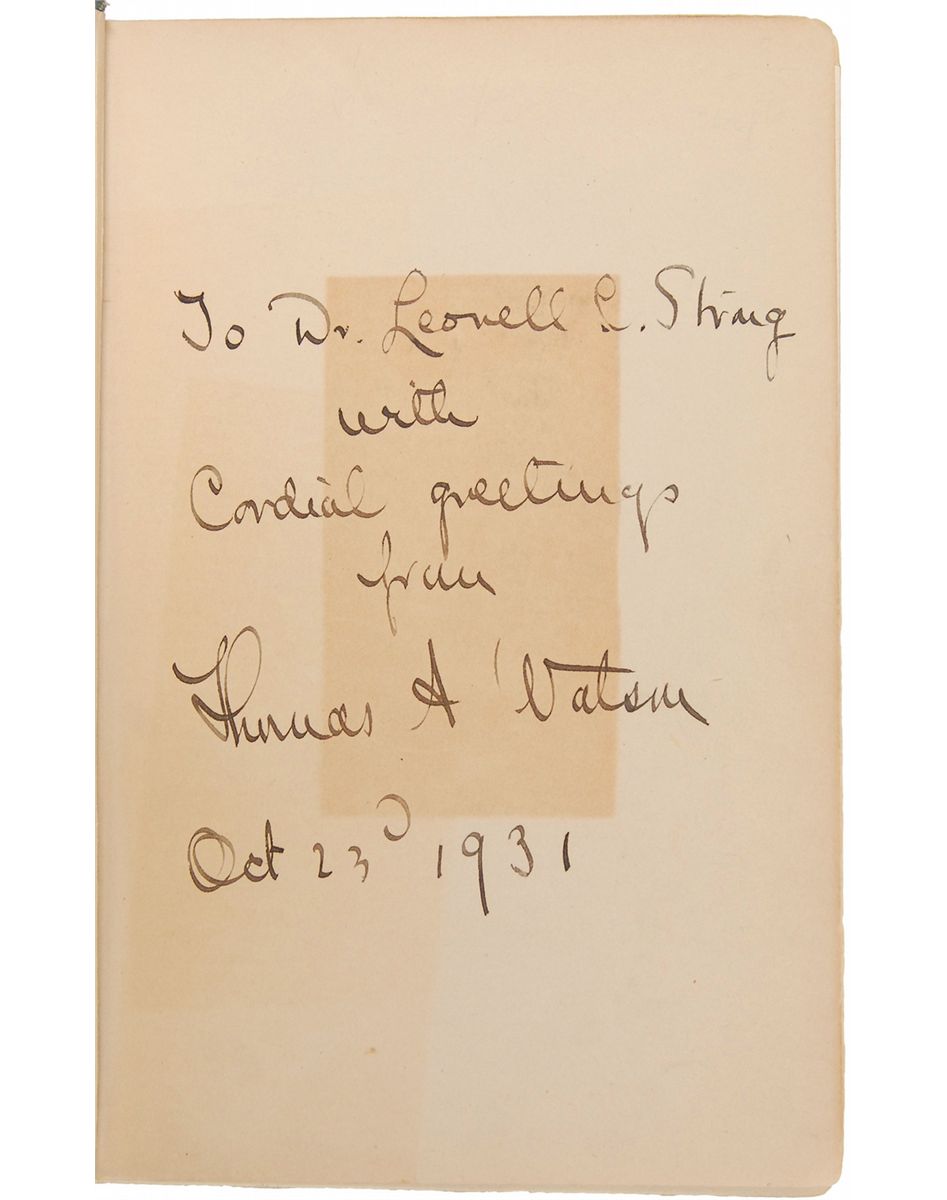 To Dr. Leonell C. Strong
with
Cordial greetings
from
Thomas A Watson
Oct 23d 1931